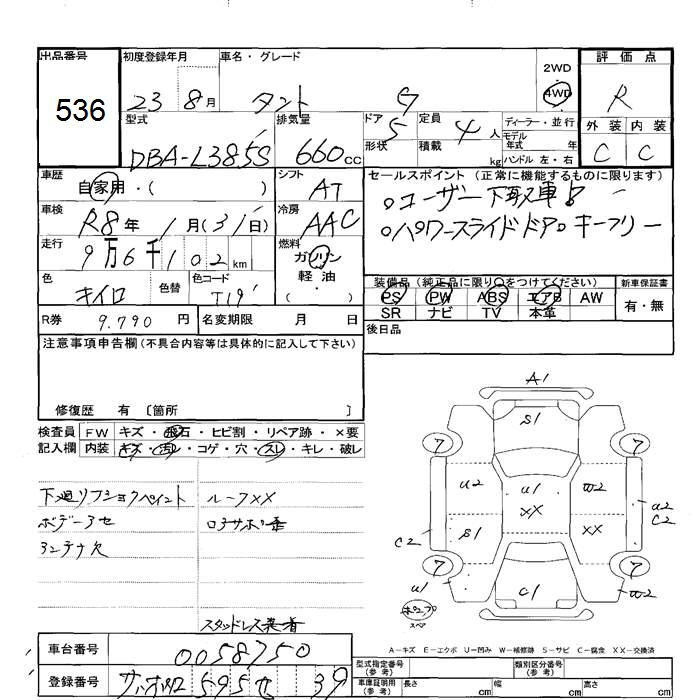 出品番号 初度登録年月 車名・グレード 2WD 評価点
536 23 8月 タント G 4WD R
型式 排気量 ドア 定員 ディーラー・並行 外装 内装
DBA-L385S 660cc 5 4人 モデル年式 年 C C
形状 積載 kg ハンドル 左・右
車歴 自家用・( ) シフト AT セールスポイント (正常に機能するものに限ります)
車検 R8年 1月(31日) 冷房 AAC 。ユーザー下取車!
。パワースライドドア。キーフリー
走行 9万6千102km 燃料 ガソリン
軽油・( )
色 キイロ 色替 色コード T19 装備品 (純正品に限り○をつけてください) 新車保証書
PS PW ABS エアB AW 有・無
SR ナビ TV 本革
R券 9,790円 名変期限 月 日 後日品
注意事項申告欄 (不具合内容等は具体的に記入して下さい)
修復歴 有 〔箇所 〕
検査員 FW キズ・飛石・ヒビ割・リペア跡・×要
記入欄 内装 キズ・汚レ・コゲ・穴・スレ・キレ・破レ
A1
S1
7 7
U2 U1 W2
XX U2
C2
S1 XX
C2
7 7
U1 C1 W2
スペ
下廻リフショクペイント ルーフXX
ボデー
欠
スタッドレス装着
A-キズ E-エクボ U-凹み W-補修跡 S-サビ C-腐食 XX-交換済
車台番号 0058750
登録番号 595 せ 39
型式指定番号 (参考) 類別区分番号 (参考)
車庫証明用 (参考) 長さ cm 幅 cm 高さ cm